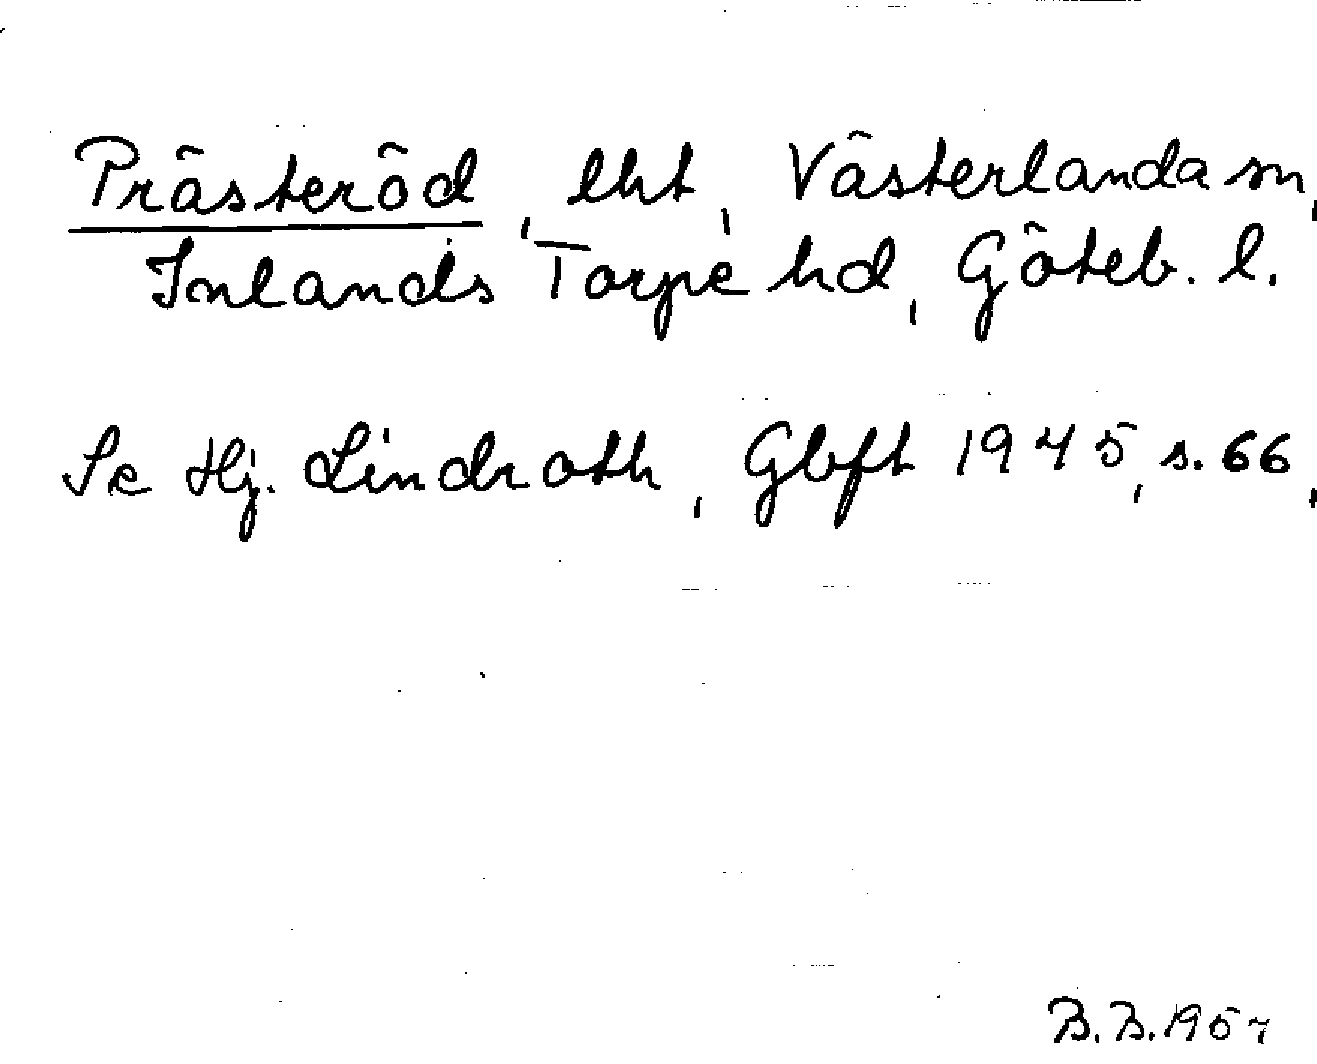 Prästeröd, lht, Västerlanda sn,
Inlands Torpe hd, Göteb. l.
Se Hj. Lindroth, Gbft 1945, s. 66,
B.B. 1957